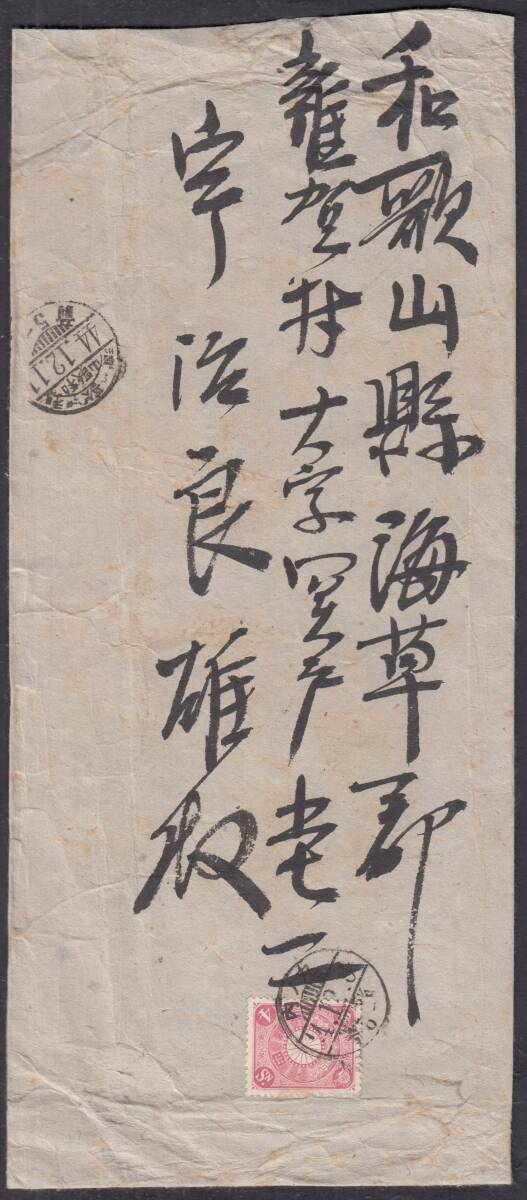 和歌山縣海草郡
雑賀村大字関戸
宇治良雄殿
44.12.11